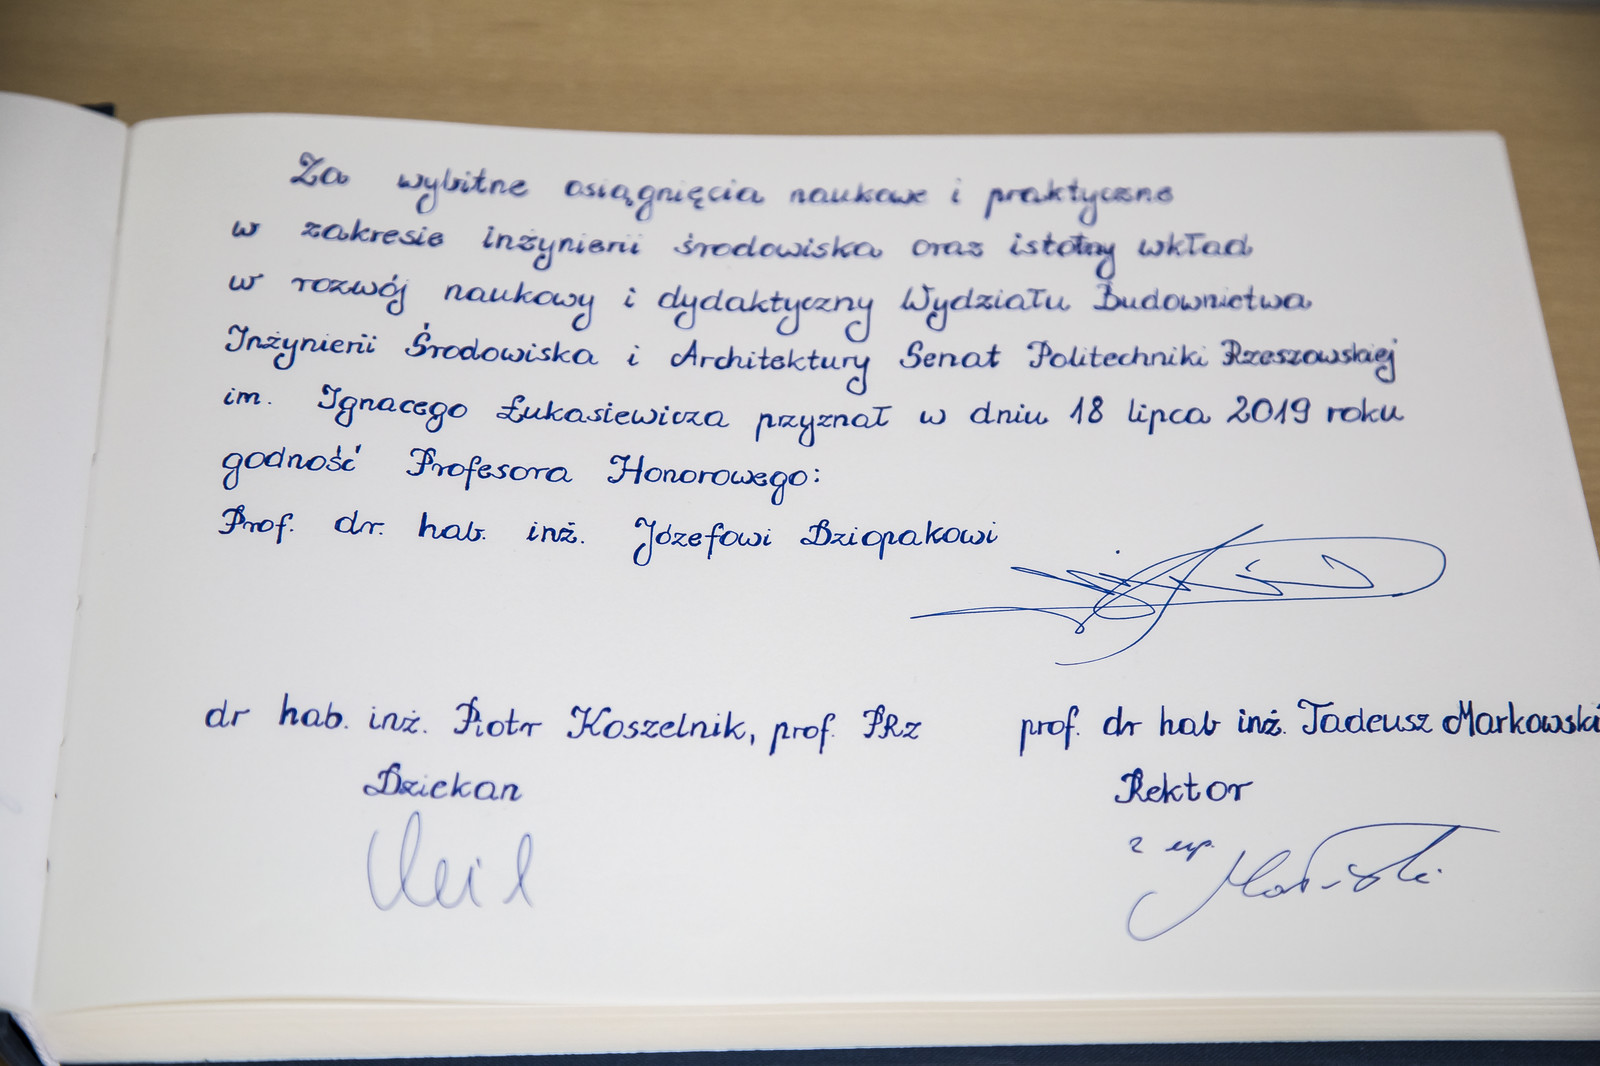 Za wybitne osiągnięcia naukowe i praktyczne
w zakresie inżynierii środowiska oraz istotny wkład
w rozwój naukowy i dydaktyczny Wydziału Budownictwa
Inżynierii Środowiska i Architektury Senat Politechniki Rzeszowskiej
im. Ignacego Łukasiewicza przyznał w dniu 18 lipca 2019 roku
godność Profesora Honorowego:
Prof. dr. hab. inż. Józefowi Dziopakowi
dr hab. inż. Piotr Koszelnik, prof. PRz
Dziekan
prof. dr hab inż. Tadeusz Markowski
Rektor
z up.